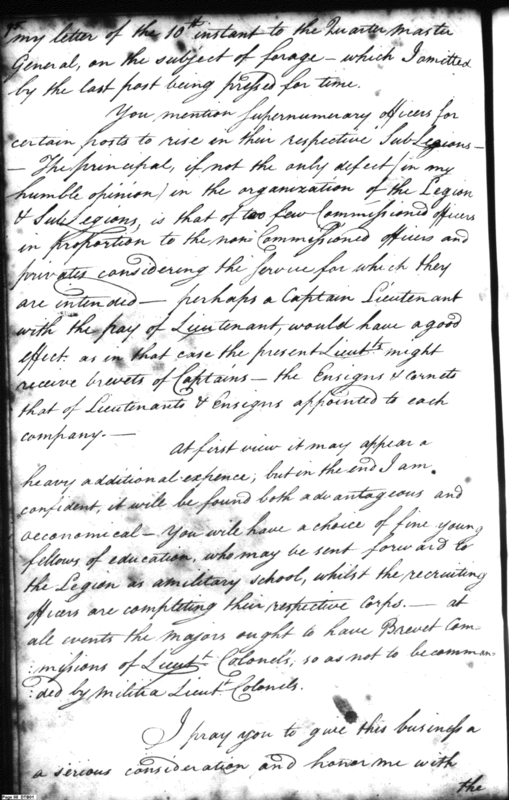 my letter of the 10th instant to the Quarter Master
General, on the subject of forage - which I omitted
by the last post being pressed for time.
You mention Supernumerary officers for
certain posts to rise in their respective Sub Legions -
- The principal, if not the only defect (in my
humble opinion) in the organization of the Legion
& Sub Legions, is that of too few Commissioned officers
in proportion to the non Commissioned officers and
privates considering the Service for which they
are intended - perhaps a Captain Lieutenant
with the pay of Lieutenant, would have a good
effect. as in that case the present Lieuts might
receive brevets of Captains - the Ensigns & cornets
that of Lieutenants & Ensigns appointed to each
company. -
At first view it may appear a
heavy additional expence, but in the end I am
confident, it will be found both advantageous and
oeconomical - You will have a choice of fine young
fellows of education, who may be sent forward to
the Legion as a military school, whilst the recruiting
officers are completing their respective Corps. - at
all events the majors ought to have Brevet Com-
:missions of Lieut. Colonels, so as not to be comman-
:ded by militia Lieut. Colonels.
I pray you to give this business a
a serious consideration and honor me with
the